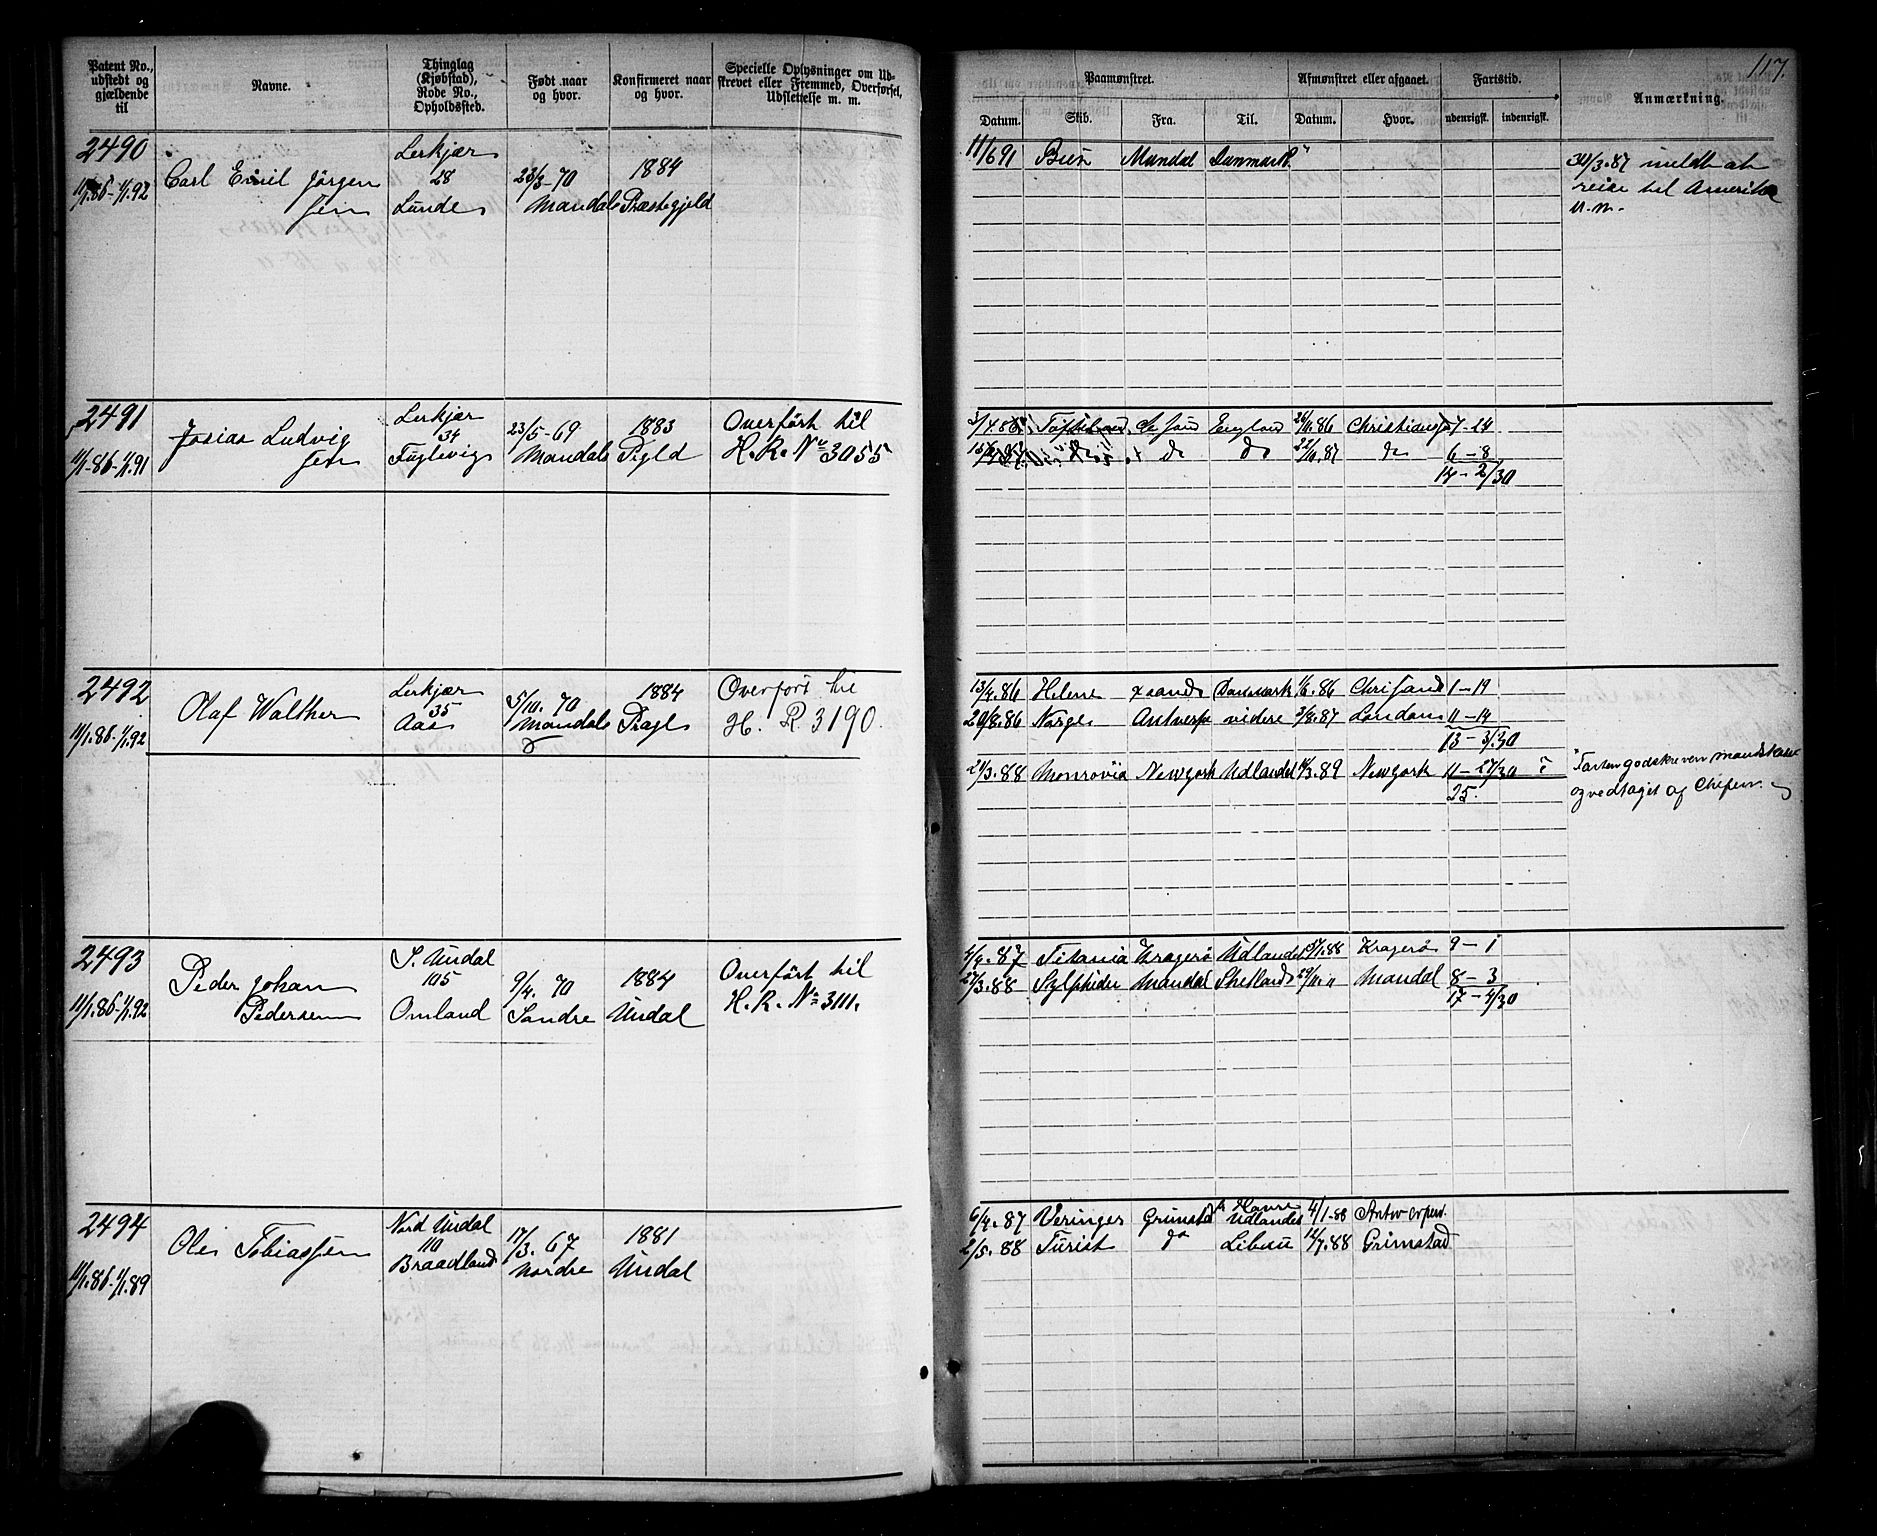 117.
Patent No., udstedt og gjældende til
Navne.
Thinglag (Kjøbstad), Rode No., Opholdssted.
Født naar og hvor.
Konfirmeret naar og hvor.
Specielle Oplysninger om Udskrevet eller Fremmed, Overførsel, Udslettelse m. m.
Paamønstret.
Afmønstret eller afgaaet.
Fartstid.
Anmærkning.
Datum.
Skib.
Fra.
Til.
Datum.
Hvor.
udenrigsk.
indenrigsk.
2490
11/1.86-1/1.92
Carl Emil Jörgensen
Lerkjær
28
Lunde
23/3-70
Mandals
1884
Præstegjeld
11/6 91 Mandal Danmark
30/3.87 meldt at
reise til Amerika
2491
11/1-86-1/1.91
Josias Ludvigsen
Lerkjær
34
Fuglevig
23/5-69
Mandals
1883
Pgld
Overført til
H. R. No 3055
England 26/6.86 Christianss 7-24
do do 22/6.87 do 6-8
14-2/30
2492
11/1.86-1/1.92
Olaf Walther
Lerkjær
35
Aas
5/10.70
Mandals
1884
Prægl
Overført til
H. R 3190.
13/4.86 Helene xsand Danmark 1/6.86 Chrisand 1-19
20/8.86 Norge Antwerp videre 3/8.87 London 11-14
13-3/30
21/3.88 Monrovia Newyork Udlandet 16/3.89 Newyork 11-27/30
25.
Farten godskreven mandskabet
og vedtaget af Chefen.
2493
11/1.86-1/1.92
Peder Johan
Pedersen
S. Undal
105
Omland
9/4. 70
Söndre
1884
Undal
Overført til
H. R. No 3111.
4/4.87 Titania Kragerö Udlandet 31/1.88 Kragerö 9-1
27/3.88 Sylphiden Mandal Shetland 29/11." Mandal 8-3
17-4/30
2494
11/1.86-1/1.89
Ole Tobiassen
Nord Undal
110
Braadland
17/3. 67
Nordre
1881
Undal
6/4.87 Veringer Grimstad Havre Udlandet 4/1-88 Antwerpen.
2/5.88 Turist do Libau 12/7.88 Grimstad